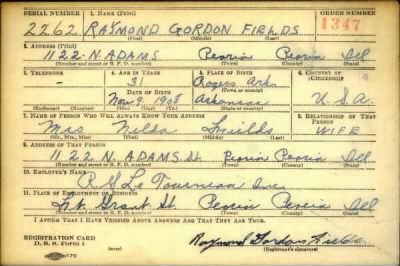 SERIAL NUMBER 1. NAME (Print) ORDER NUMBER
2262 RAYMOND GORDON FIELDS 1347
(First) (Middle) (Last)
2. ADDRESS (Print)
1122 N. ADAMS Peoria Peoria Ill
(Number and street or R. F. D. number) (Town) (County) (State)
3. TELEPHONE 4. AGE IN YEARS 5. PLACE OF BIRTH 6. COUNTRY OF CITIZENSHIP
31 Rogers Ark
DATE OF BIRTH (Town or county)
Nov 9 1908 Arkansas U.S.A.
(Exchange) (Number) (Mo.) (Day) (Yr.) (State or country)
7. NAME OF PERSON WHO WILL ALWAYS KNOW YOUR ADDRESS 8. RELATIONSHIP OF THAT PERSON
Mrs Fields WIFE
(Mr., Mrs., Miss) (First) (Middle) (Last)
9. ADDRESS OF THAT PERSON
1122 N. ADAMS St. Peoria Peoria Ill
(Number and street or R. F. D. number) (Town) (County) (State)
10. EMPLOYER'S NAME
R G Le Tourneau Inc.
11. PLACE OF EMPLOYMENT OR BUSINESS
Ft. Grant St. Peoria Peoria Ill
(Number and street or R. F. D. number) (Town) (County) (State)
I AFFIRM THAT I HAVE VERIFIED ABOVE ANSWERS AND THAT THEY ARE TRUE.
REGISTRATION CARD
D. S. S. Form 1 Raymond Gordon Fields
(Registrant's signature)